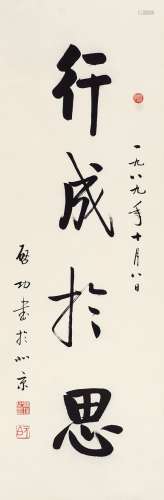 行成於思
一九八九年十月八日
启功書於北京